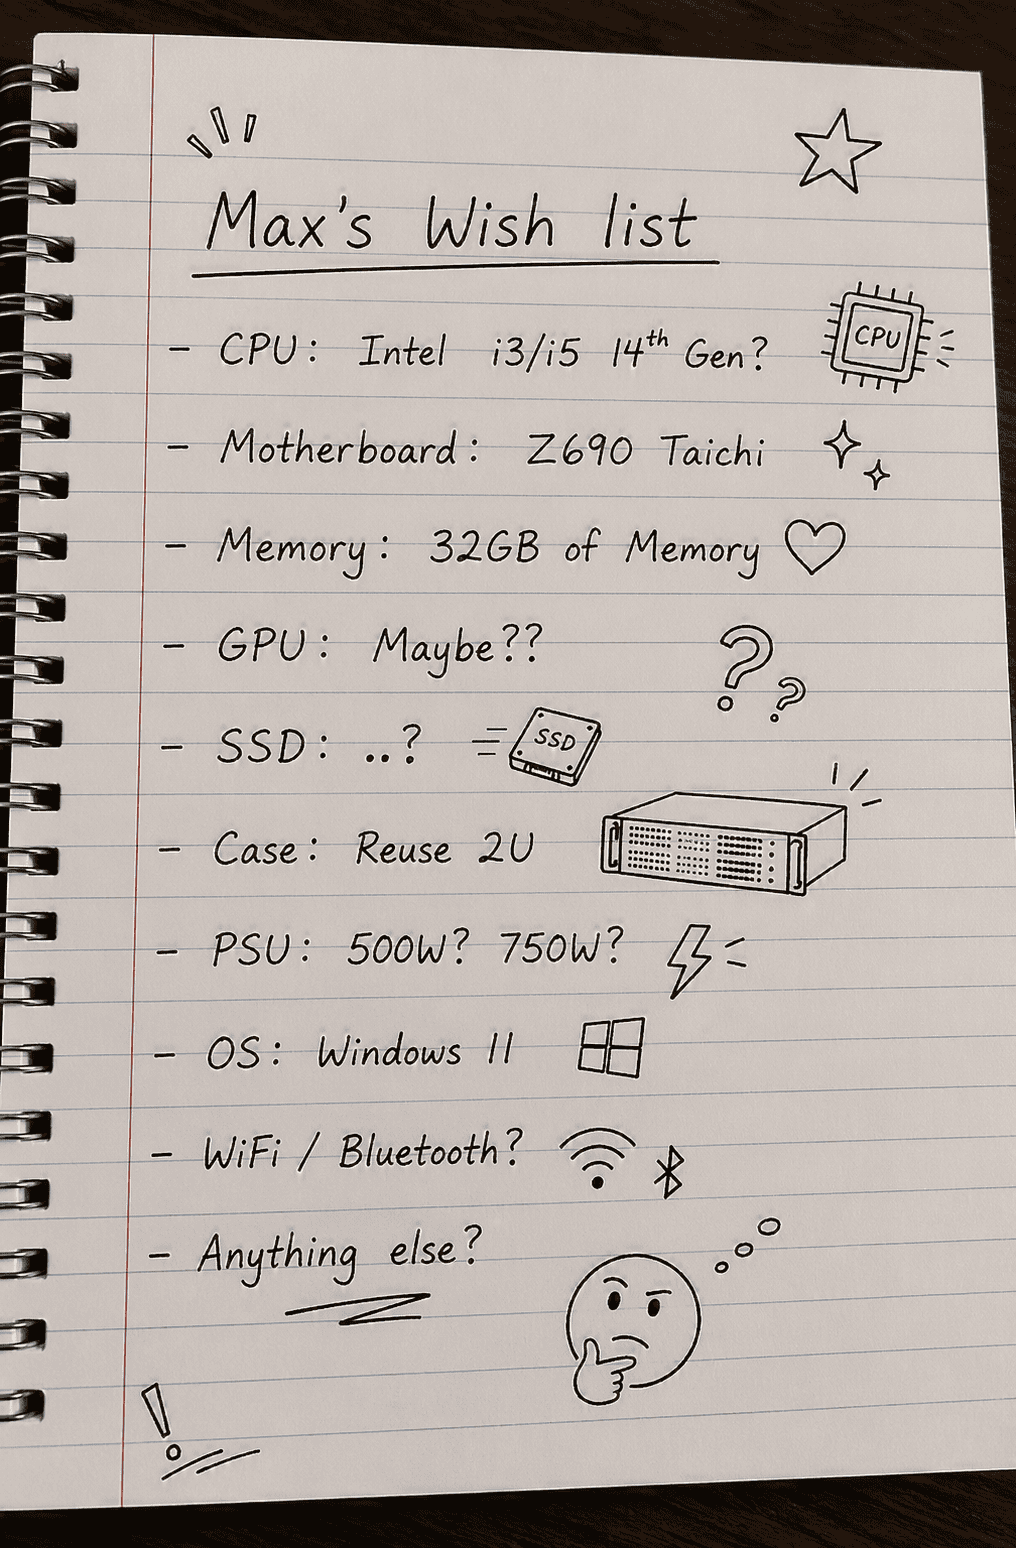 Max's Wish list
- CPU: Intel i3/i5 14th Gen?
CPU
- Motherboard: Z690 Taichi
- Memory: 32GB of Memory
- GPU: Maybe??
??
- SSD: ..?
SSD
- Case: Reuse 2U
- PSU: 500W? 750W?
- OS: Windows 11
- WiFi / Bluetooth?
- Anything else?
!